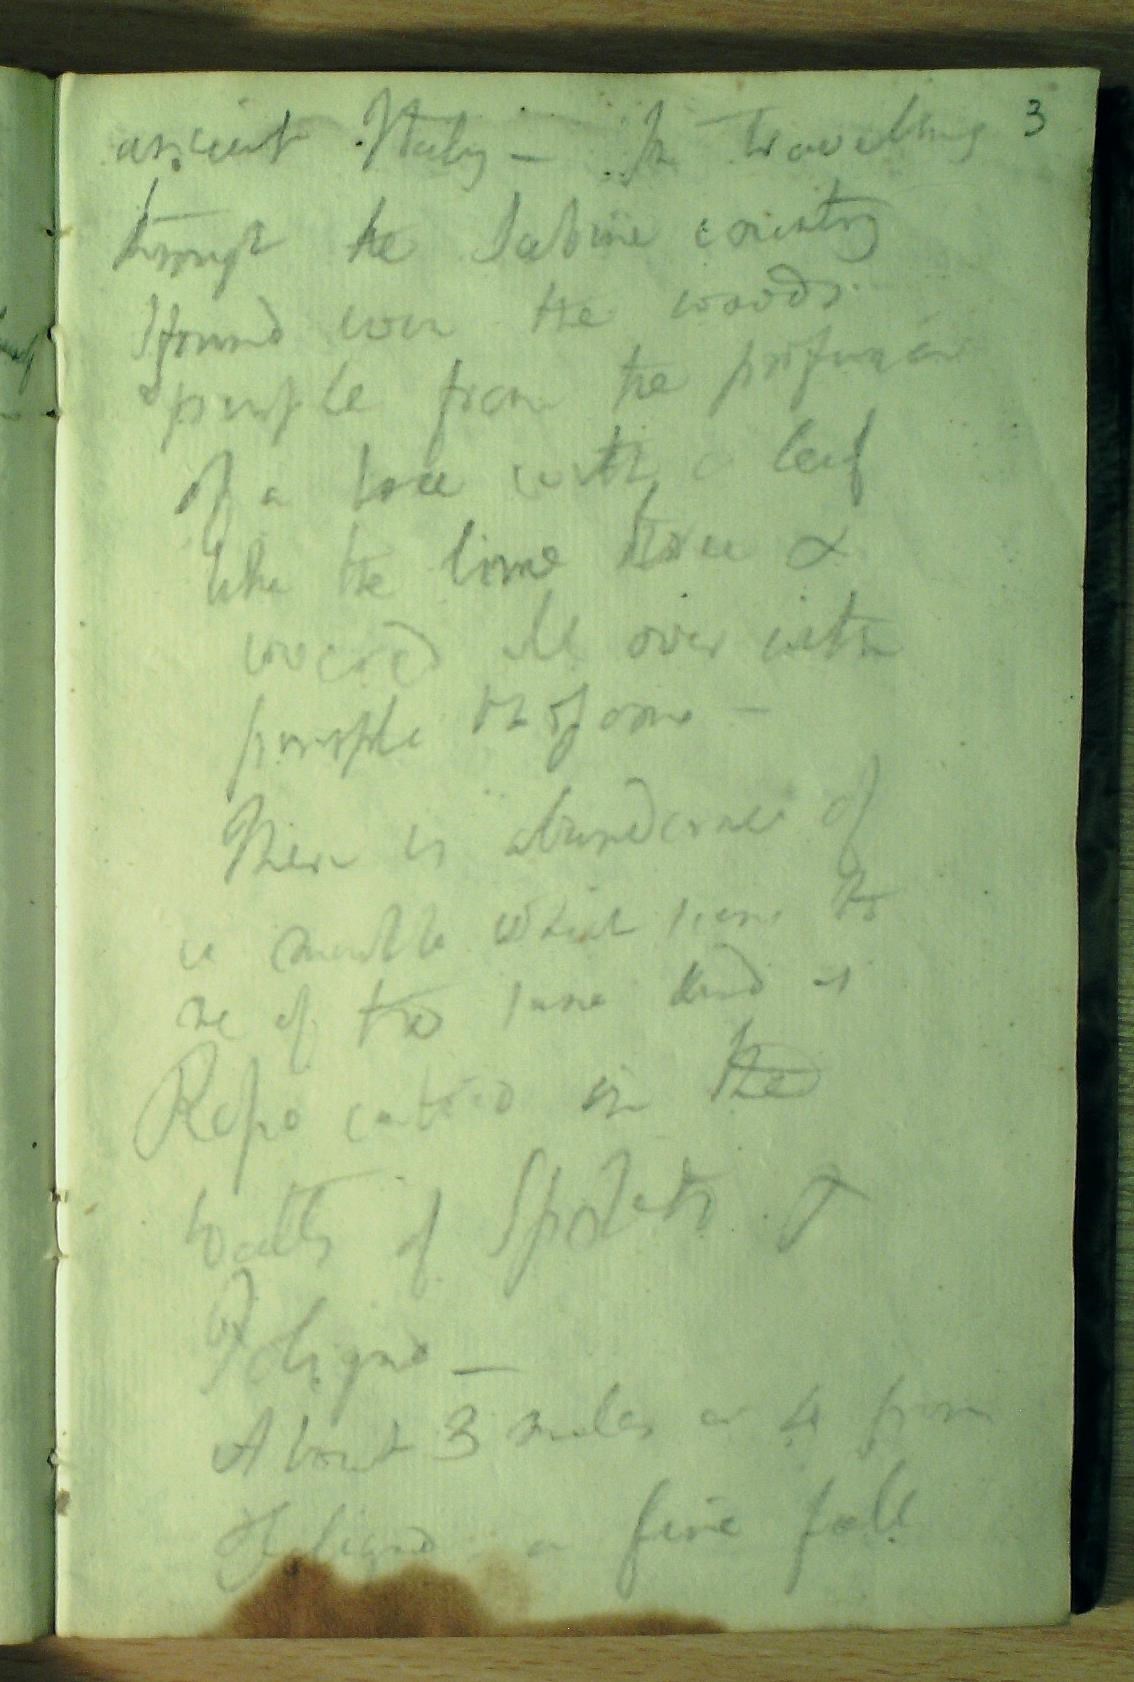 3
ancient Italy – In travelling
through the Sabine country
I found even the woods
purple from the profusion
of a tree with a leaf
like the lime tree &
covered all over with
purple blossoms –
There is abundance of
marble which seems to
me of the same kind as
Rosso in the
Walls of Spoleto &
Foligno –
About 3 miles or 4 from
Foligno a fine fall